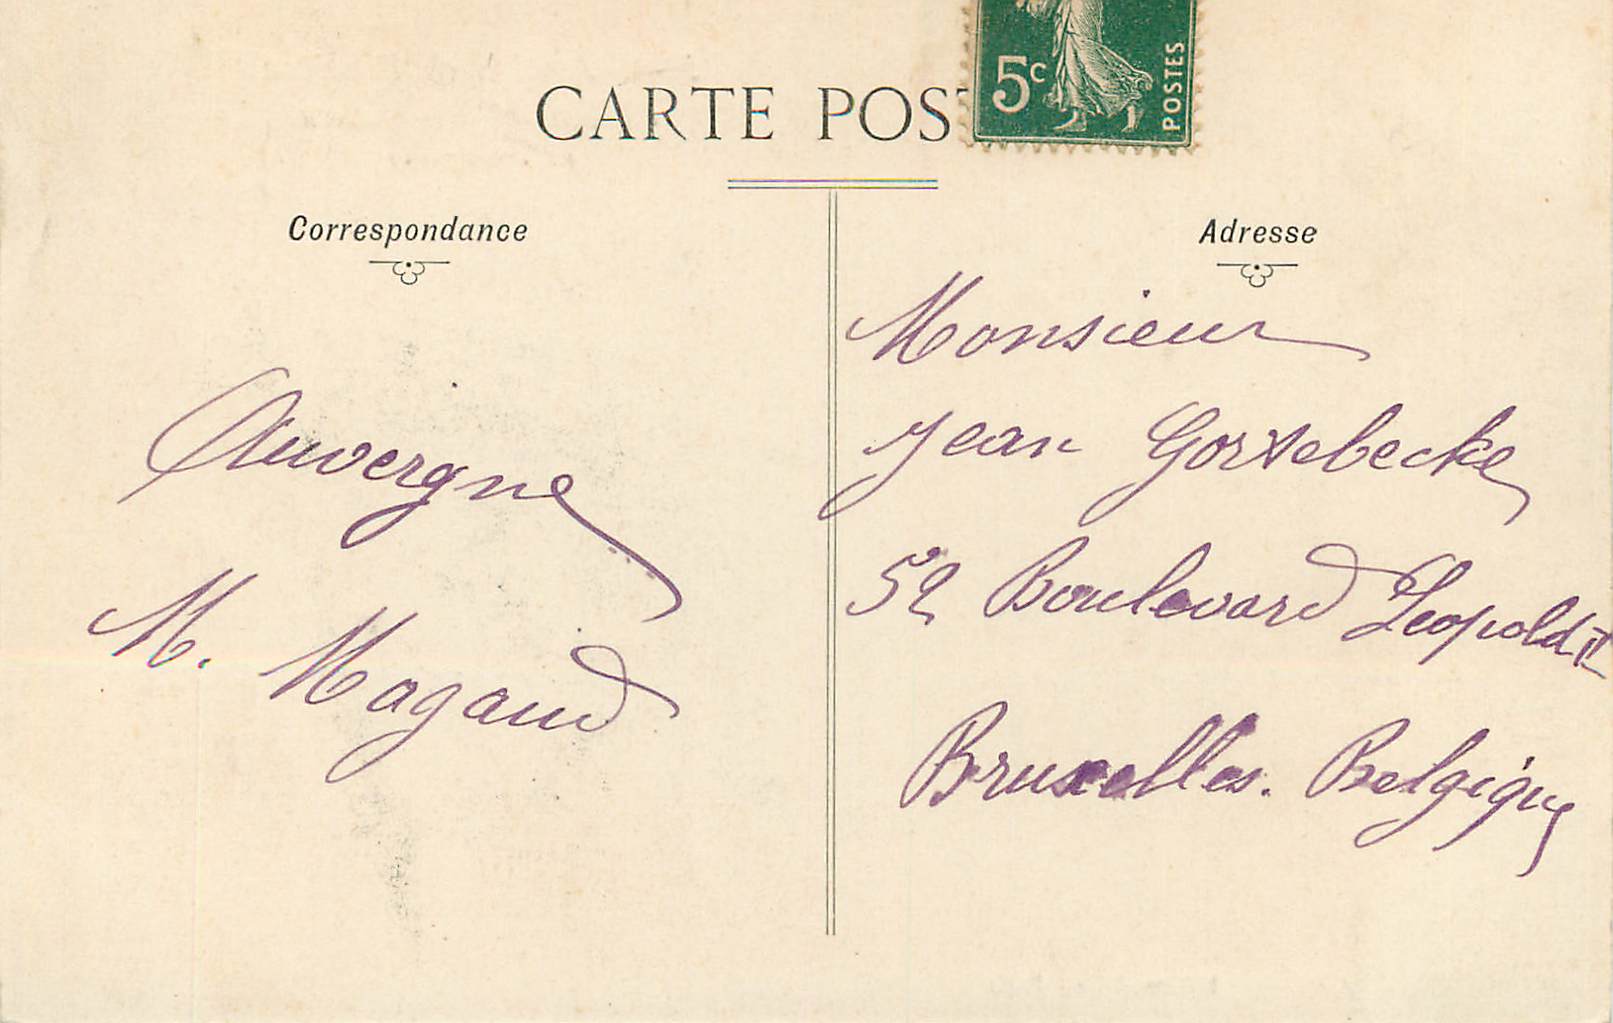 CARTE POST
5c
POSTES
Correspondance
Auvergne
M. Magaud
Adresse
Monsieur
Jean Gorsebecke
52 Boulevard Leopold II
Bruxelles. Belgique